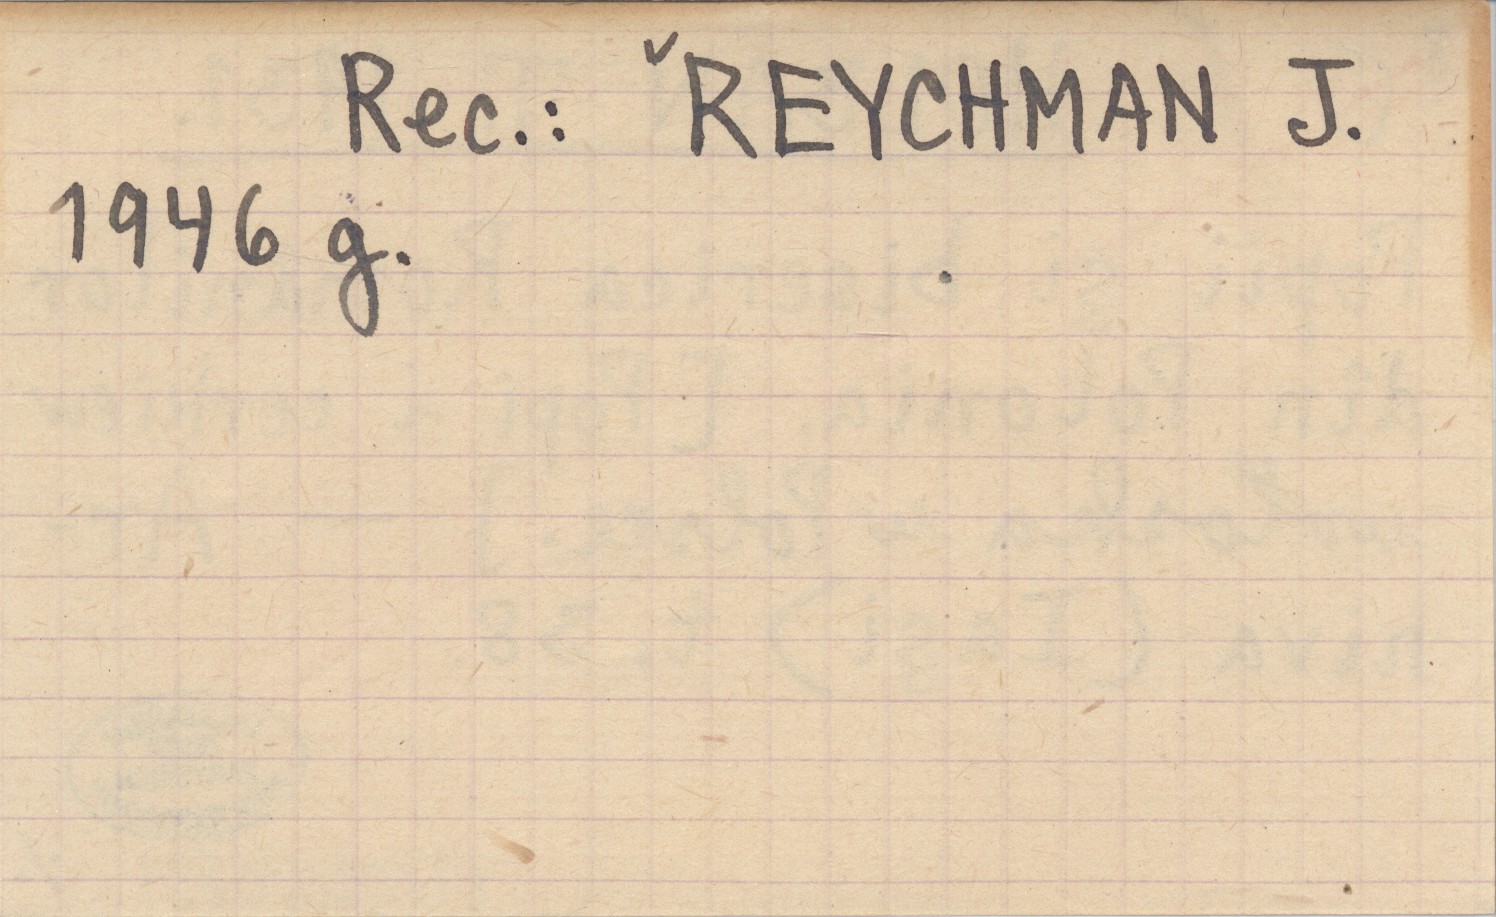 Rec.: ˇREYCHMAN J.
1946 g.